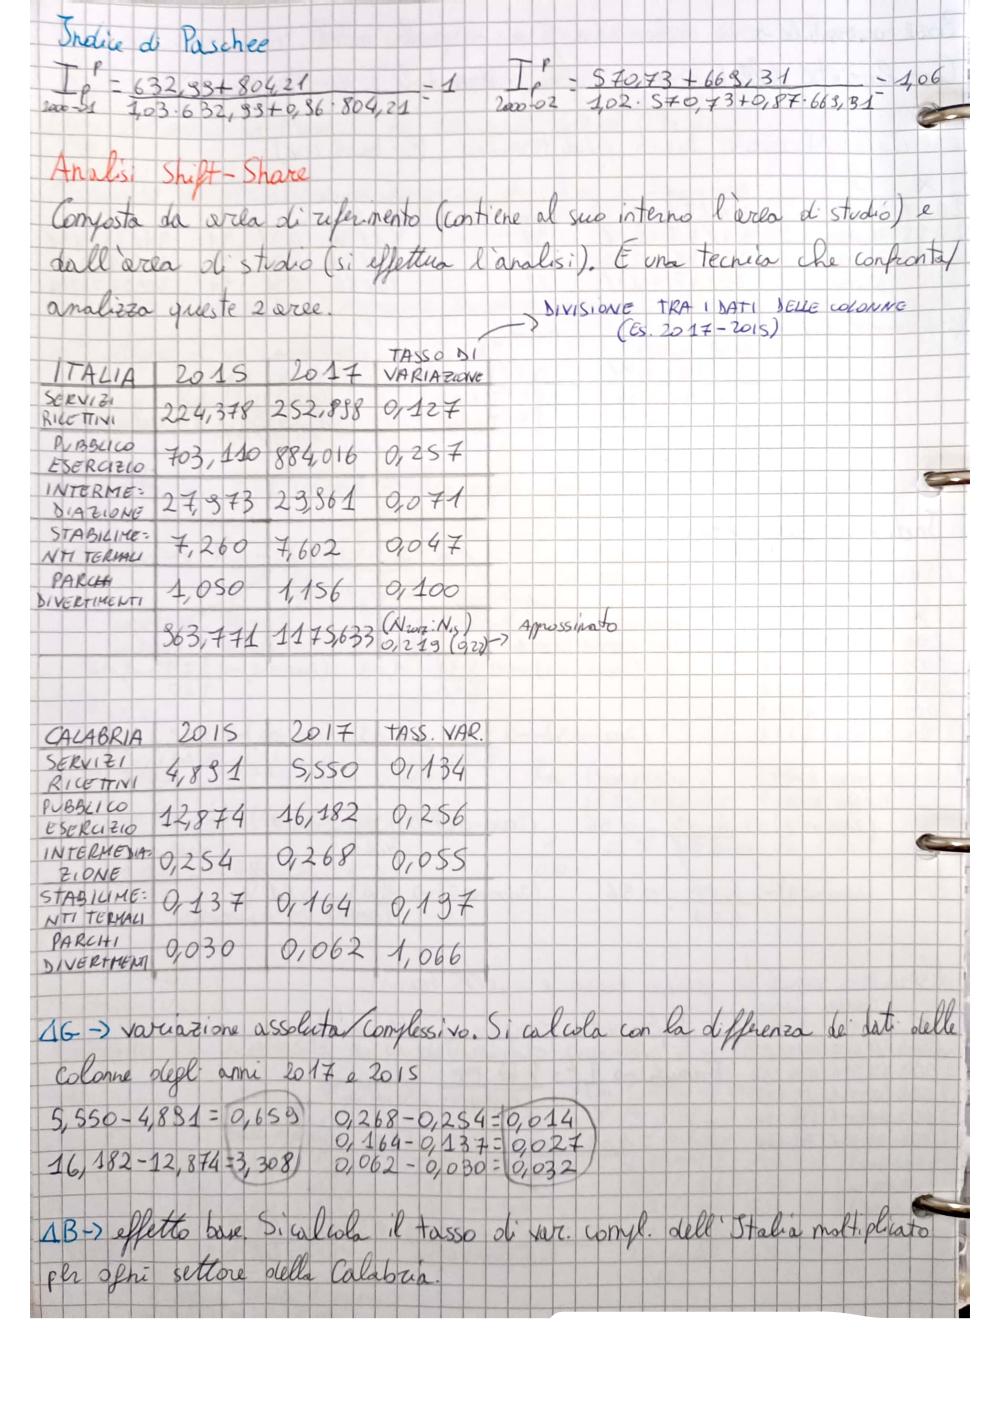 Indice di Paschee
I P P 2000-01 = 632,99+804,21 / 1,03·632,99+0,96·804,21 = 1
I P P 2000-02 = 570,73+669,31 / 1,02·570,73+0,87·669,31 = 1,06
Analisi Shift-Share
Composta da area di riferimento (contiene al suo interno l'area di studio) e
dall'area di studio (si effettua l'analisi). È una tecnica che confronta/
analizza queste 2 aree.
DIVISIONE TRA I DATI DELLE COLONNE
(Es. 2017-2015)
ITALIA 2015 2017 TASSO DI VARIAZIONE
SERVIZI RICETTIVI 224,378 252,898 0,127
PUBBLICO ESERCIZIO 703,110 884,016 0,257
INTERME= DIAZIONE 27,973 29,961 0,071
STABILIME= NTI TERMALI 7,260 7,602 0,047
PARCHI DIVERTIMENTI 1,050 1,156 0,100
963,771 1175,633 0,219 (0,22) → Approssimato
CALABRIA 2015 2017 TASS. VAR.
SERVIZI RICETTIVI 4,891 5,550 0,134
PUBBLICO ESERCIZIO 12,874 16,182 0,256
INTERMEDIA= ZIONE 0,254 0,268 0,055
STABILIME= NTI TERMALI 0,137 0,164 0,197
PARCHI DIVERTIMENTI 0,030 0,062 1,066
ΔG → variazione assoluta/complessivo. Si calcola con la differenza dei dati delle
colonne degli anni 2017 e 2015
5,550-4,891=0,659 0,268-0,254=0,014
0,164-0,137=0,027
16,182-12,874=3,308 0,062-0,030=0,032
ΔB→ effetto base. Si calcola il tasso di var. compl. dell'Italia moltiplicato
per ogni settore della Calabria.